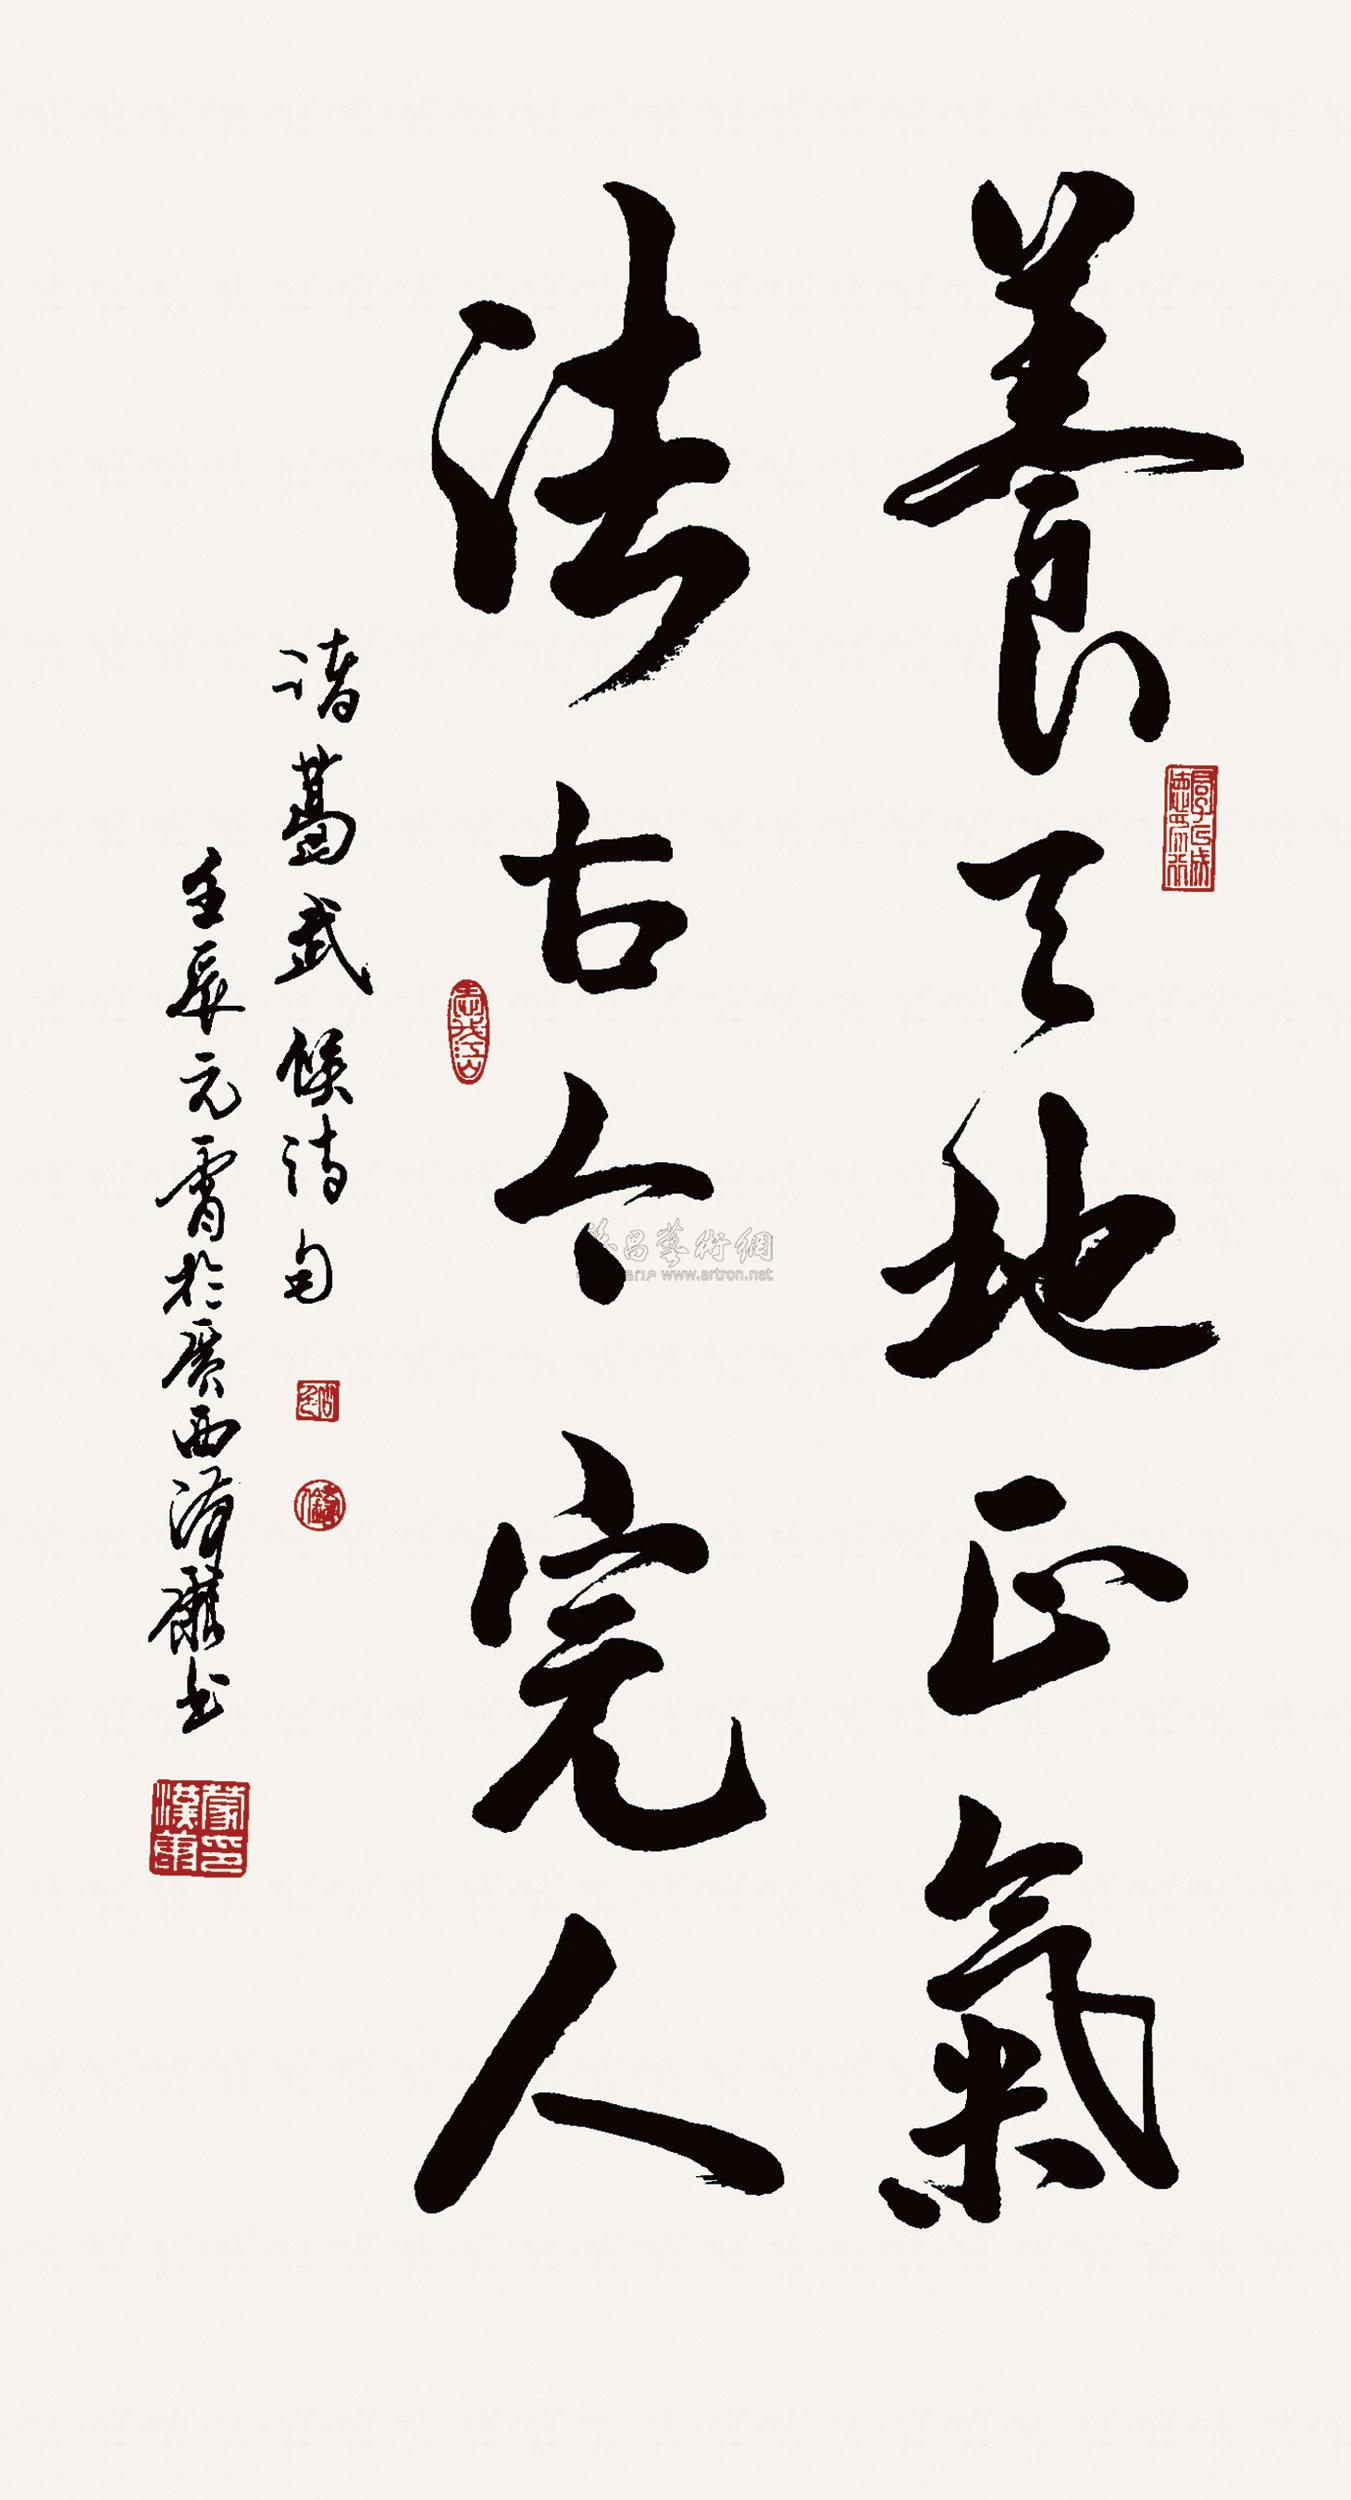 養天地正氣
法古今完人
諸葛武侯詩句
壬辰元宵於廣西
書
雅昌藝術網
www.artron.net